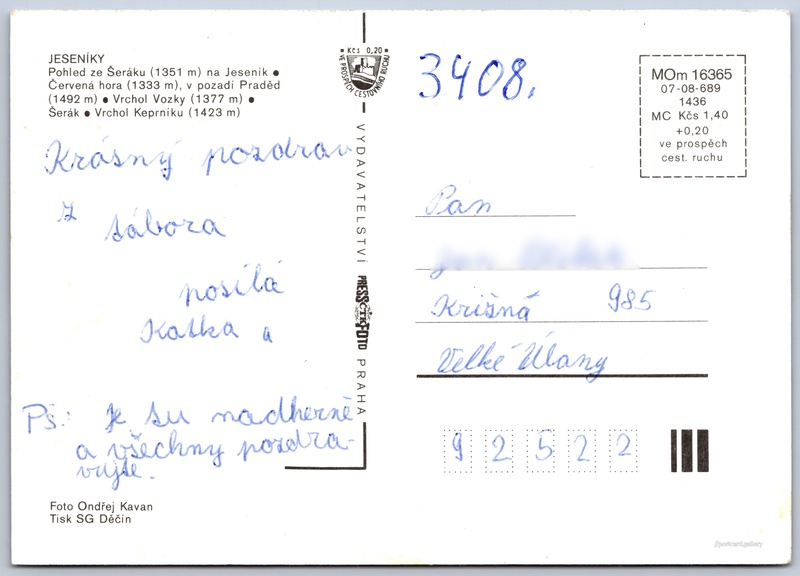 JESENÍKY
Pohled ze Šeráku (1351 m) na Jeseník ●
Červená hora (1333 m), v pozadí Praděd
(1492 m) ● Vrchol Vozky (1377 m) ●
Šerák ● Vrchol Keprníku (1423 m)
Krásný pozdrav
z tábora
posílá
Katka a
Ps: Je su nadherně
a všechny pozdra-
vujte.
Foto Ondřej Kavan
Tisk SG Děčín
Kčs 0,20
VE PROSPĚCH CESTOVNÍHO RUCHU
VYDAVATELSTVÍ PRESSFOTO ČTK PRAHA
3408.
MOm 16365
07-08-689
1436
MC Kčs 1,40
+0,20
ve prospěch
cest. ruchu
Pán
Krišná 985
Velké Úlany
92522
//postcard.gallery